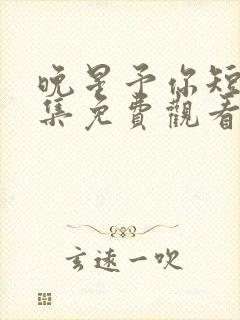 晚星予你短
集免費觀看
玄遠一吹